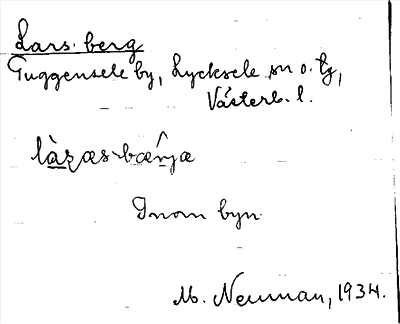 Lars-berg
Tuggensele by, Lycksele sn o. tg,
Västerb. l.
làʒæs-bærjæ
Inom byn
M. Neuman, 1934.